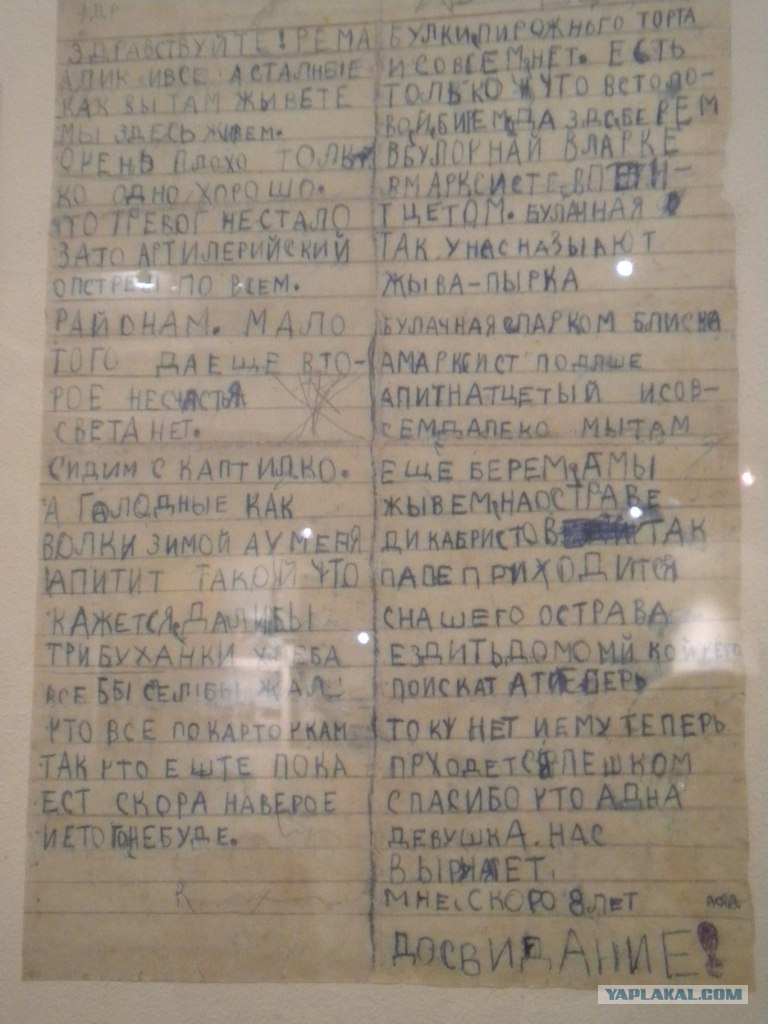 ЗДР
ЗДРАВСТВУЙТЕ! РЕМА
АЛИК ИВСЕ АСТАЛНЫЕ
КАК ВЫ ТАМ ЖЫВЕТЕ
МЫ ЗДЕСЬ ЖИВЕМ.
ОЧЕНЬ ПЛОХО ТОЛЬ
КО ОДНО ХОРОШО.
ЧТО ТРЕВОГ НЕСТАЛО
ЗАТО АРТИЛЕРИЙСКИЙ
ОПСТРЕЛ ПО ВСЕМ.
РАЙОНАМ. МАЛО
ТОГО ДАЕЩЕ ВТО-
РОЕ НЕСЧАСТЬЯ
СВЕТА НЕТ.
СИДИМ С КАПТИЛКО.
А ГОЛОДНЫЕ КАК
ВОЛКИ ЗИМОЙ АУ МЕНЯ
АПИТИТ ТАКОЙ ЧТО
КАЖЕТСЯ ДАЛИБЫ
ТРИ БУХАНКИ ХЛЕБА
ВСЕ БЫ СЕЛ БЫ ЖАЛ
ЧТО ВСЕ ПО КАРТОЧКАМ
ТАК ЧТО ЕШТЕ ПОКА
ЕСТ СКОРА НАВЕРОЕ
И ЕТОГО НЕБУДЕ.
БУЛКИ, ПИРОЖНОГО ТОРТА
И СОВСЕМ НЕТ. ЕСТЬ
ТОЛЬКО ЧТО ВСТОЛО-
ВОЙ БИЕМ, ДА ЗДОБЕРЕМ
ВБУЛОЧНАЙ ВЛАРКЕ
ВМАРКСИСТЕ, В
ТЦЕТОМ. БУЛАЧНАЯ
ТАК УНАС НАЗЫАЮТ
ЖЫВА-ПЫРКА
БУЛАЧНАЯ СЛАРКОМ БЛИСКА
АМАРКСИСТ ПОДАЛШЕ
АПИТНАТЦЕТЫЙ ИСОВ-
СЕМ ДАЛЕКО МЫТАМ
ЕЩЕ БЕРЕМ, АМЫ
ЖЫВЕМ НАОСТРАВЕ
ДИКАБРИСТОВ ТАК
ПАПЕ ПРИХОДИТСЯ
СНАШЕГО ОСТРАВА
ЕЗДИТЬ ДОМОМЙ
ПОИСКАТ АТЕПЕРЬ
ТОКУ НЕТ ИЕМУ ТЕПЕРЬ
ПРХОДЕТСЯ ПЕШКОМ
СПАСИБО ЧТО АДНА
ДЕВУШКА НАС
ВЫРУЧАЕТ.
МНЕ СКОРО 8 ЛЕТ
ДОСВИДАНИЕ!
YAPLAKAL.COM